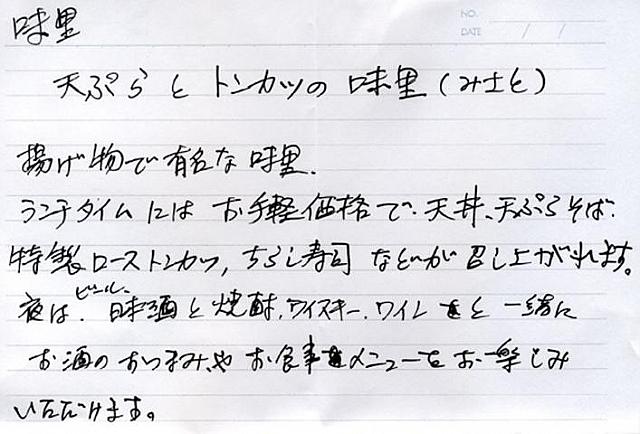 NO.
DATE / /
味里
天ぷらとトンカツの味里(みさと)
揚げ物で有名な味里.
ランチタイムにはお手軽価格で.天丼、天ぷらそば.
特製ローストンカツ,ちらし寿司などが召し上がれます。
夜は.ビール、日本酒と焼酎,ウイスキー.ワインと一緒に
お酒のおつまみやお食事メニューをお楽しみ
いただけます。